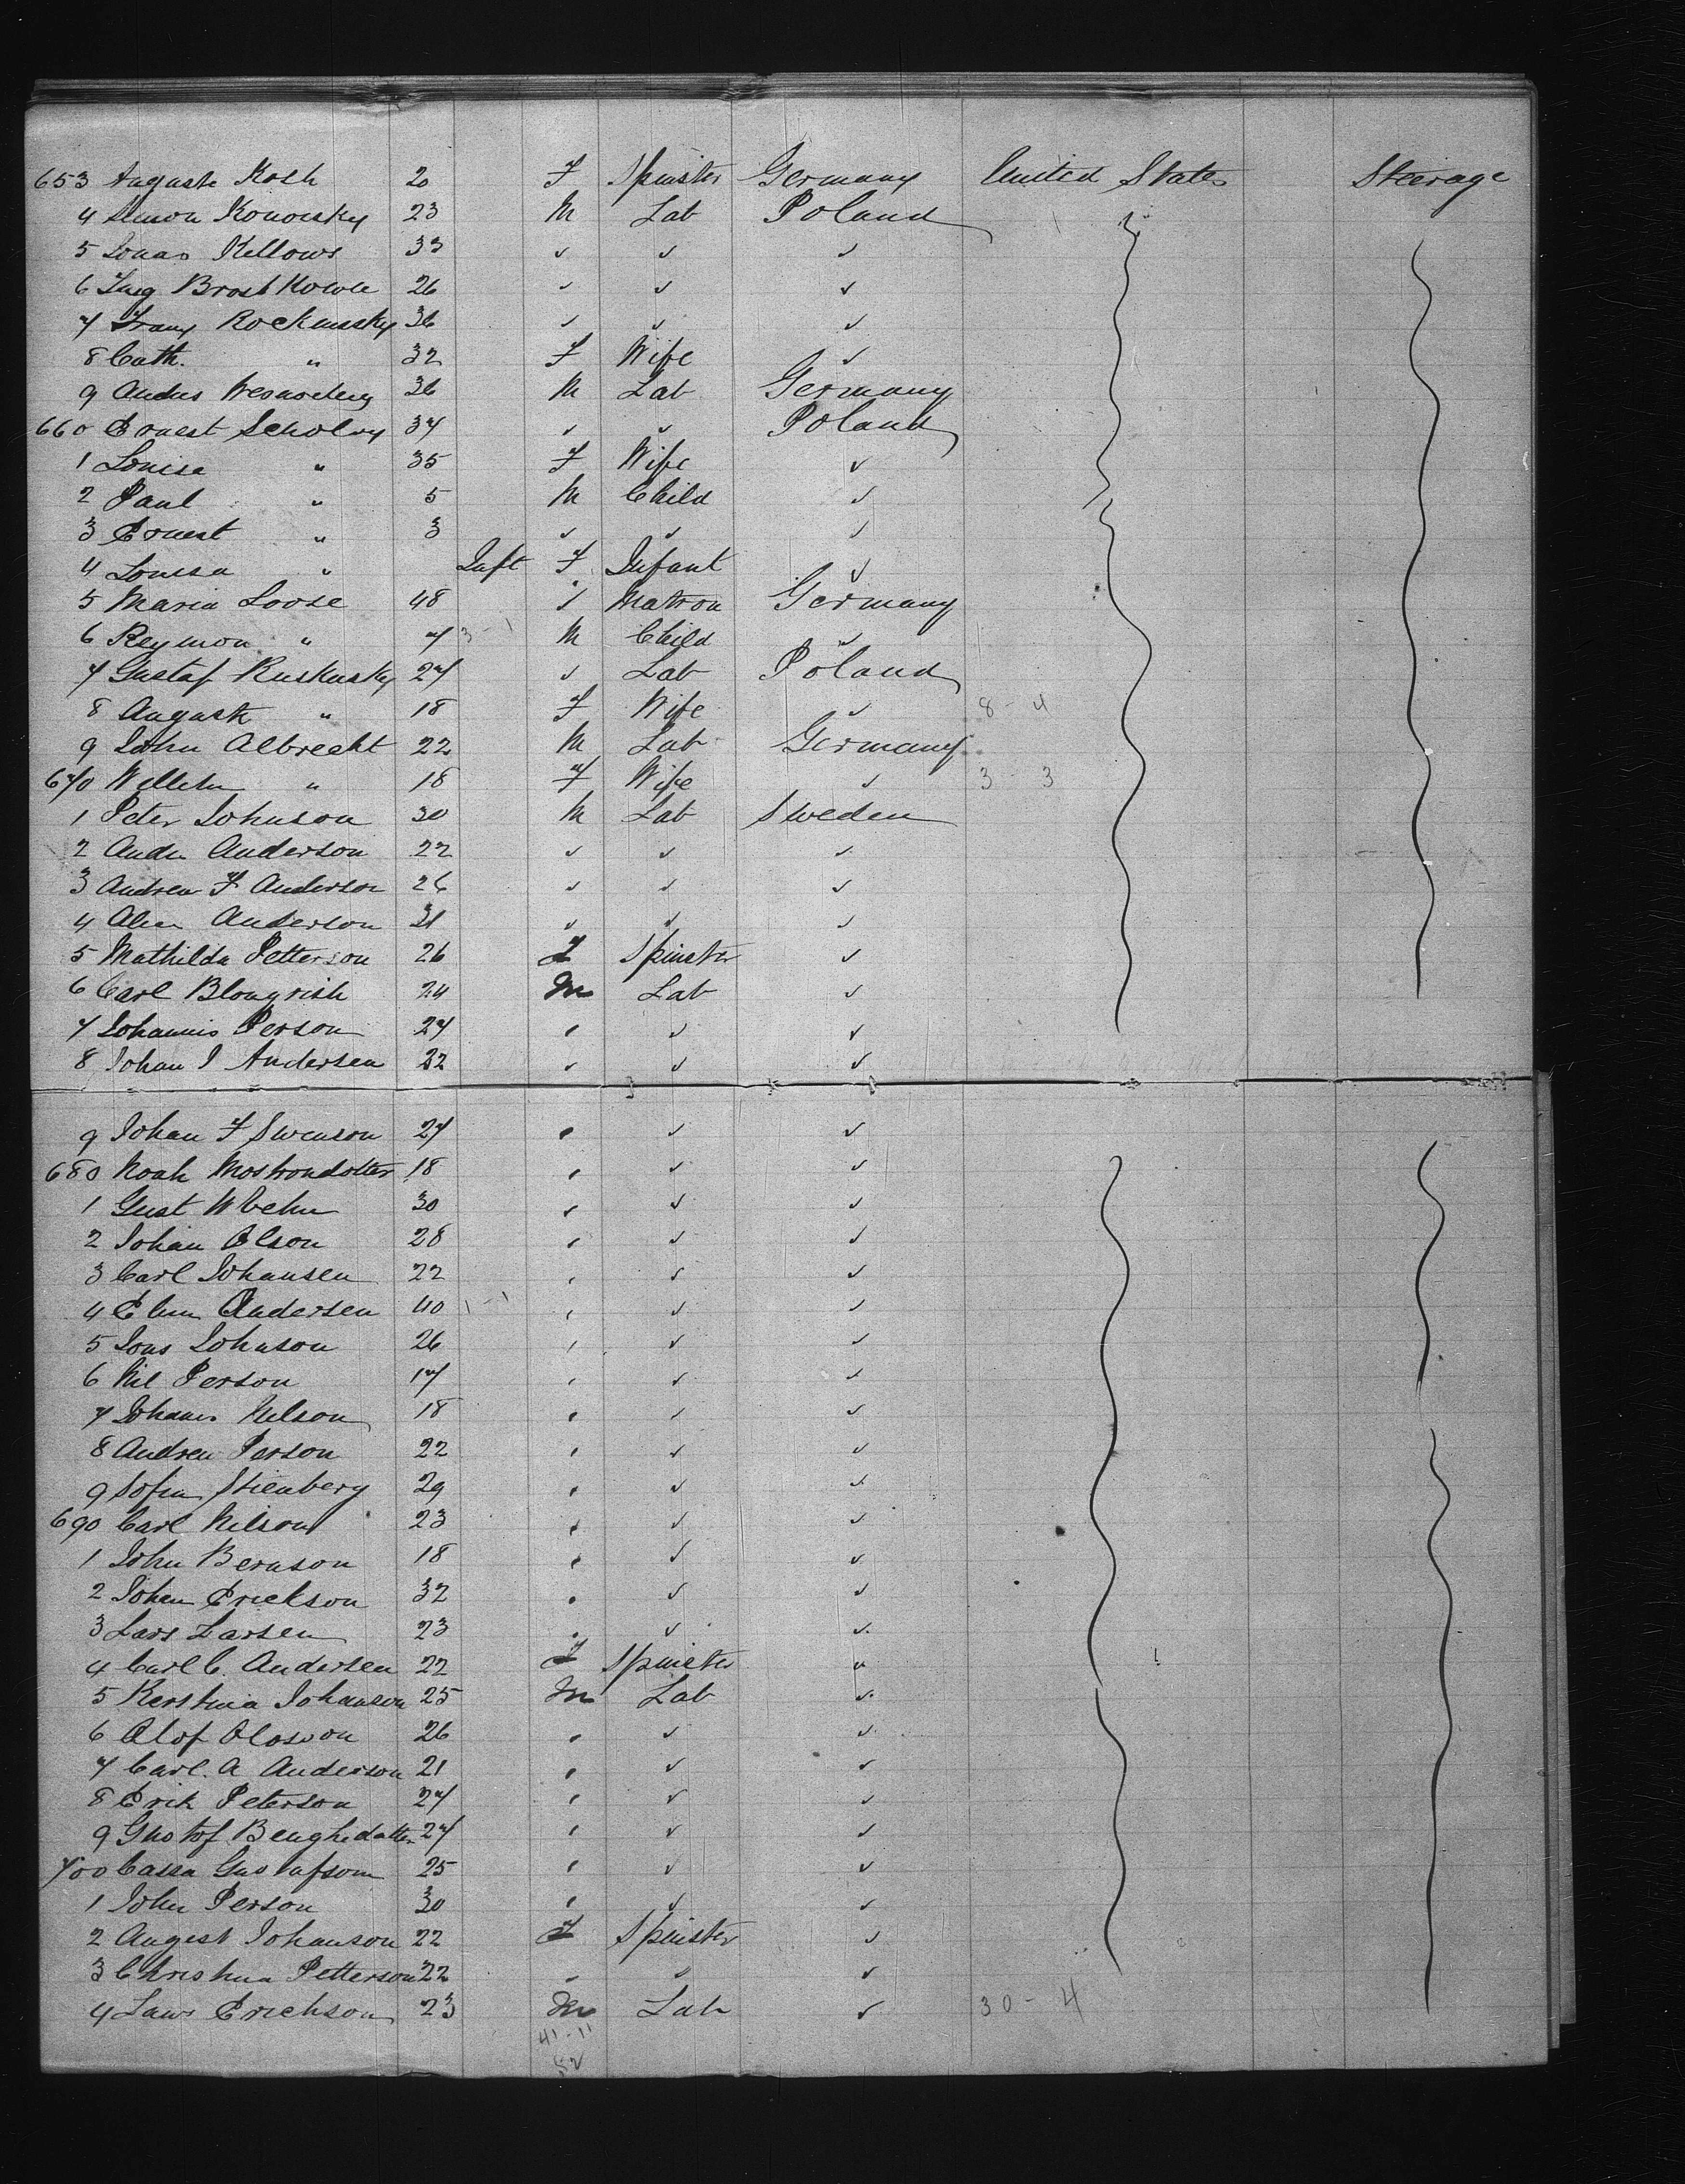 653 Auguste Kosh 20 F Spinster Germany United States Steerage
4 Simon Konorsky 23 M Lab Poland
5 Jonas Kellows 33 ✓ ✓ ✓
6 26 ✓ ✓ ✓
7 Franz Rockmssky 36 ✓ ✓ ✓
8 Cath. " 32 F Wife ✓
9 36 M Lab Germany
660 Ernest Scholvy 34 ✓ ✓ Poland
1 Louisa " 35 F Wife ✓
2 Paul " 5 M Child ✓
3 Ernest " 3 ✓ ✓ ✓
4 Louisa " Inft F Infant ✓
5 Maria Loose 48 ✓ Matron Germany
6 Reymon " 7 3-1 M Child ✓
7 Gustaf Ruskusky 27 ✓ Lab Poland
8 August " 18 F Wife ✓ 8-4
9 John Albrecht 22 M Lab Germany
670 Willehm " 18 F Wife ✓ 3-3
1 Peter Johnson 30 M Lab Sweden
2 Andr Anderson 22 ✓ ✓ ✓
3 Andrew F Anderson 26 ✓ ✓ ✓
4 Anderson 31 ✓ ✓ ✓
5 Mathilda Petterson 26 F Spinster ✓
6 Carl Blongrish 24 M Lab ✓
7 Johannis Person 27 ✓ ✓ ✓
8 Johan I Andersen 22 ✓ ✓ ✓
9 Johan F Swenson 27 ✓ ✓ ✓
680 Noah Mostrondotter 18 ✓ ✓ ✓
1 Gust 30 ✓ ✓ ✓
2 Johan Olson 28 ✓ ✓ ✓
3 Carl Johansen 22 ✓ ✓ ✓
4 Andersen 40 1-1 ✓ ✓ ✓
5 Jons Johnson 26 ✓ ✓ ✓
6 Nil Person 17 ✓ ✓ ✓
7 Johans Nelson 18 ✓ ✓ ✓
8 Andrew Person 22 ✓ ✓ ✓
9 Sofia Stienberg 29 ✓ ✓ ✓
690 Carl Nilson 23 ✓ ✓ ✓
1 John Bernson 18 ✓ ✓ ✓
2 Johan Erickson 32 ✓ ✓ ✓
3 Lars Larsen 23 ✓ ✓ ✓
4 Carl C. Andersen 22 F Spinster ✓
5 Kerstina Johanson 25 M Lab ✓
6 Olof Olosson 26 ✓ ✓ ✓
7 Carl. A Anderson 21 ✓ ✓ ✓
8 Erik Peterson 27 ✓ ✓ ✓
9 Gustof Benghedatter 27 ✓ ✓ ✓
700 Cassa Gustafsom 25 ✓ ✓ ✓
1 John Person 30 ✓ ✓ ✓
2 Augest Johanson 22 F Spinster ✓
3 Christina Petterson 22 ✓ ✓ ✓
4 Laws Erichson 23 M Lab ✓ 30-4
41-11
52